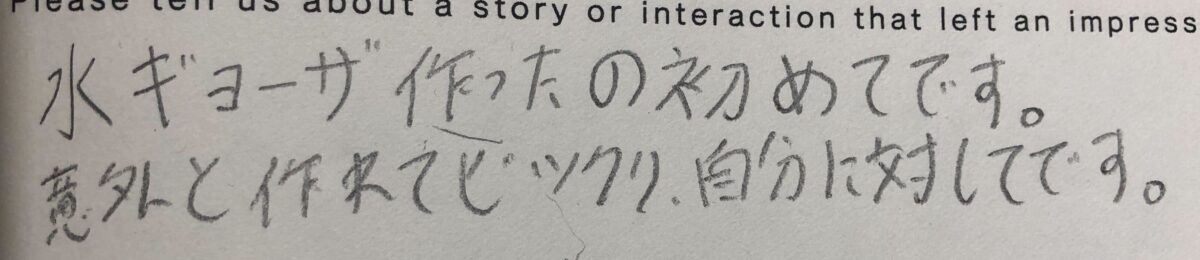 Please tell us about a story or interaction that left an impress
水ギョーザ作ったの初めてです。
意外と作来てビックリ.自分に対してです。